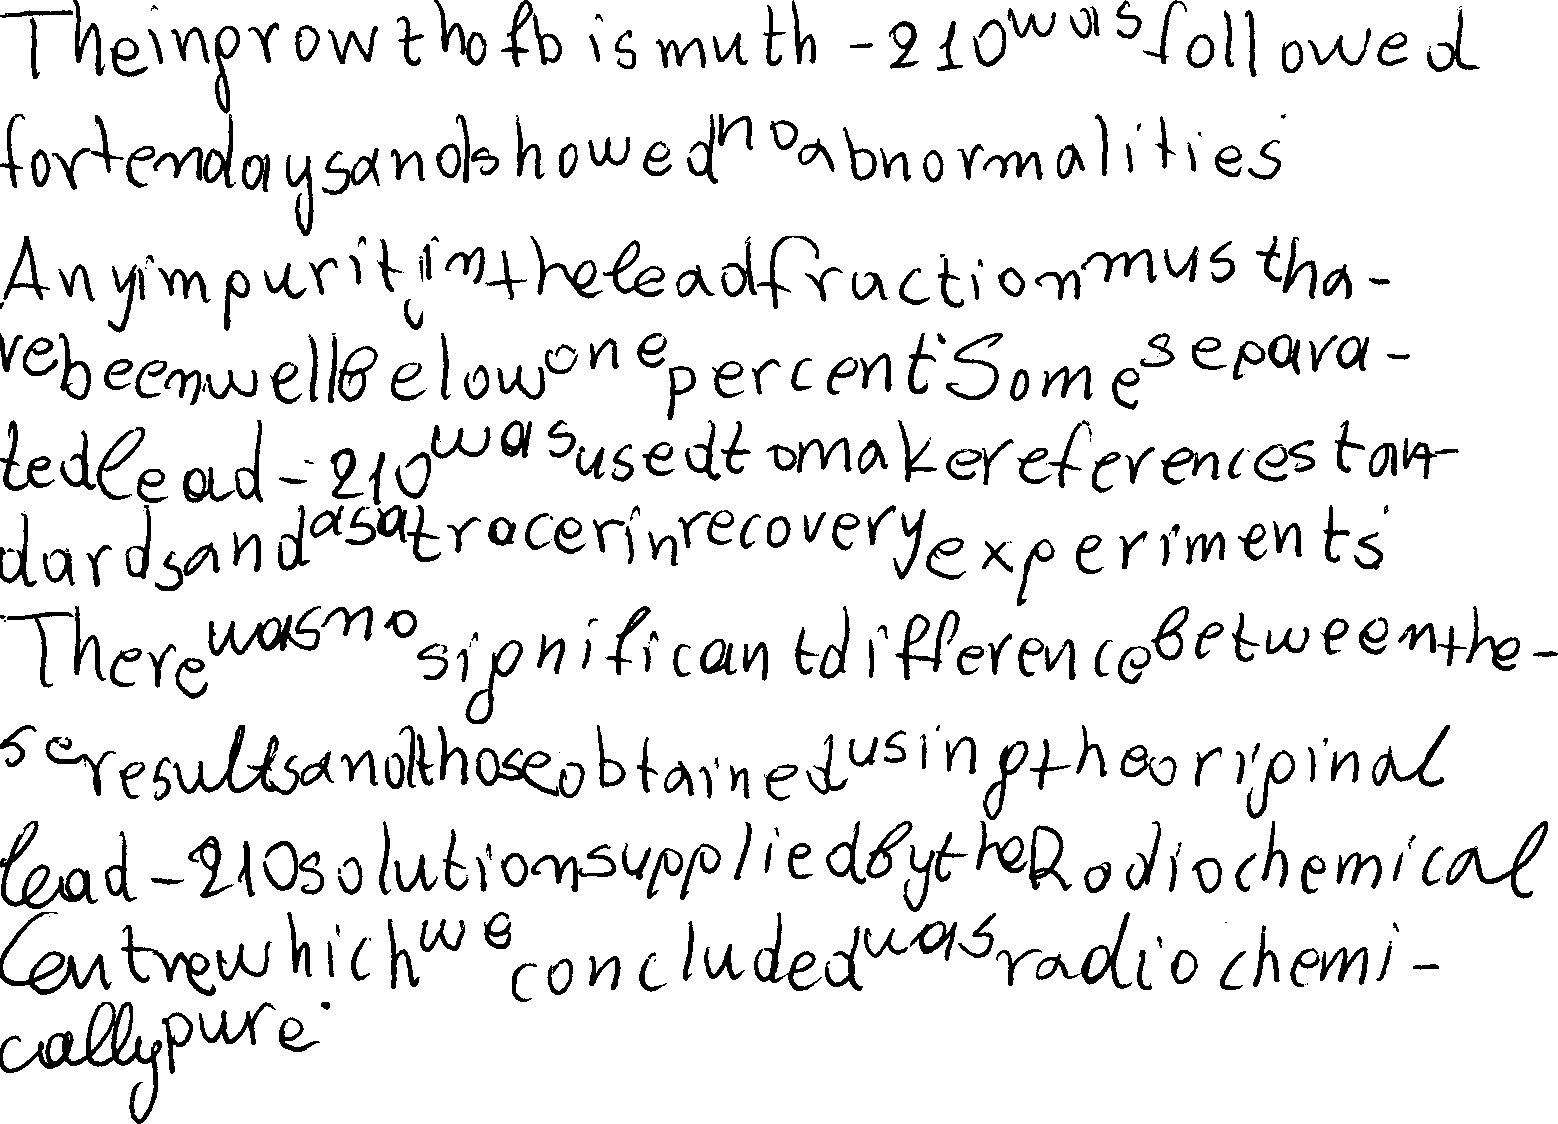 The ingrowth of bismuth-210 was followed
for ten days and showed no abnormalities
Any impurity in the lead fraction must ha-
ve been well below one percent. Some separa-
ted lead-210 was used to make reference stan-
dards and as a tracer in recovery experiments.
There was no significant difference between the-
se results and those obtained using the original
lead-210 solution supplied by the Radiochemical
Centre which we concluded was radiochemi-
cally pure.